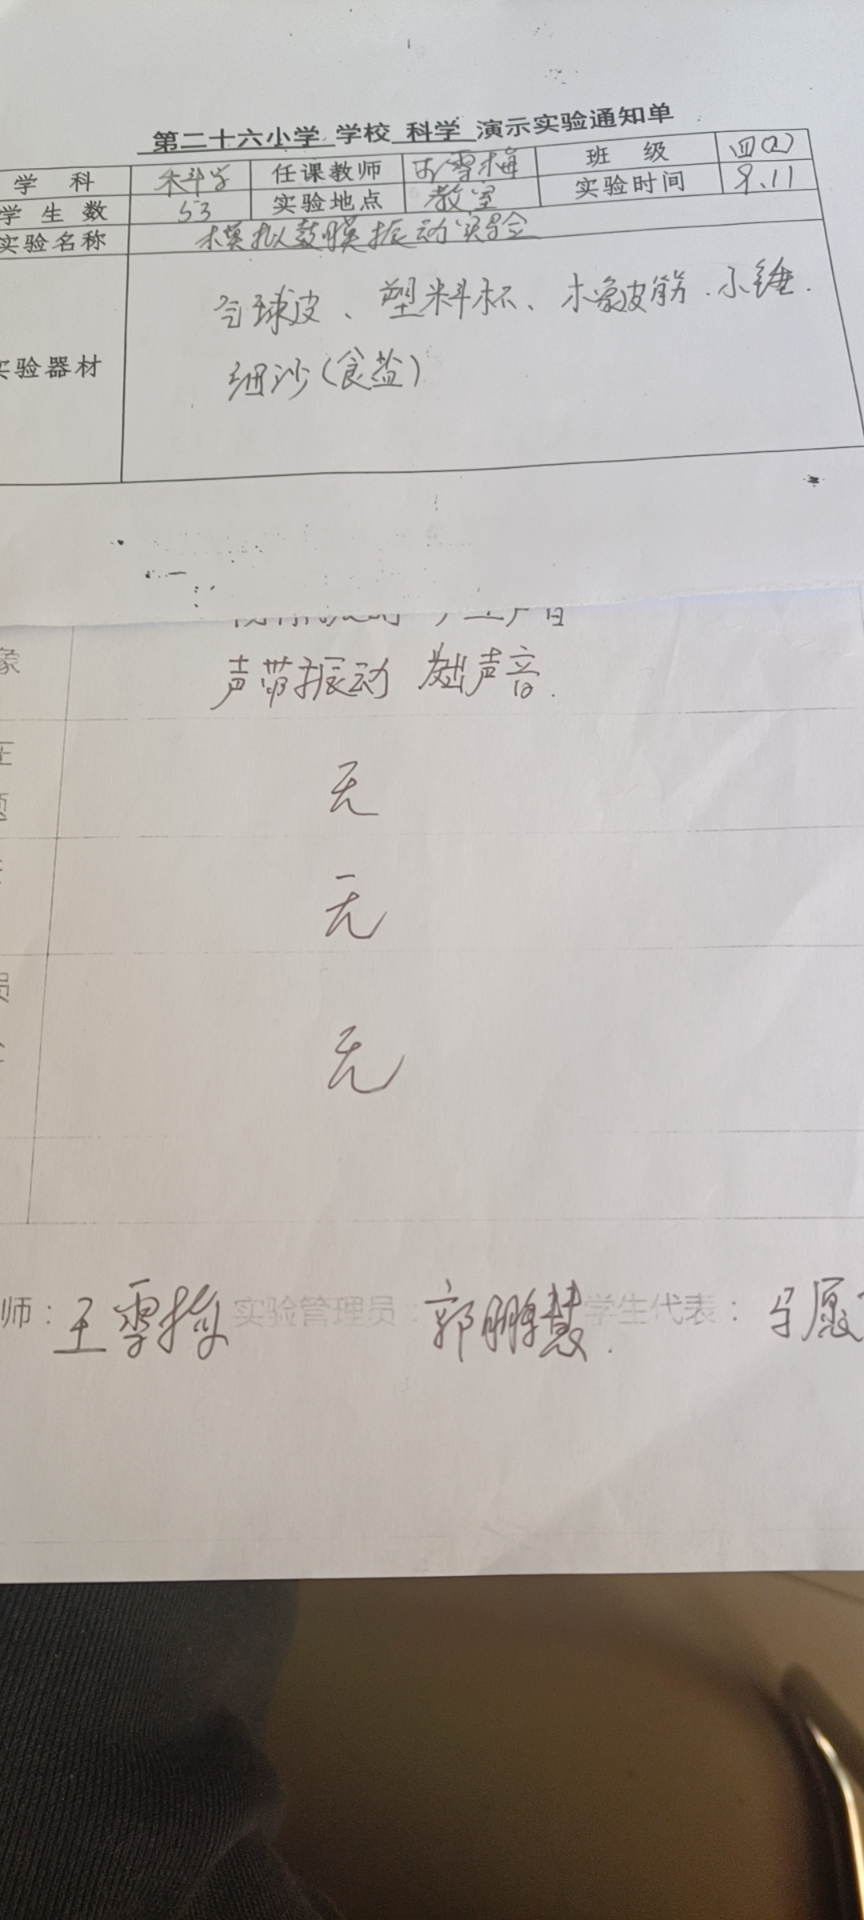 第二十六小学 学校 科学 演示实验通知单
学 科 科学 任课教师 王雪梅 班 级 四(2)
学 生 数 53 实验地点 教室 实验时间 9.11
实验名称 模拟鼓膜振动实验
气球皮、塑料杯、木象皮筋、小锤.
实验器材
细沙(食盐)
声带振动 发出声音.
无
无
员 无
师: 王雪梅 实验管理员: 郭鹏慧. 学生代表: 马愿